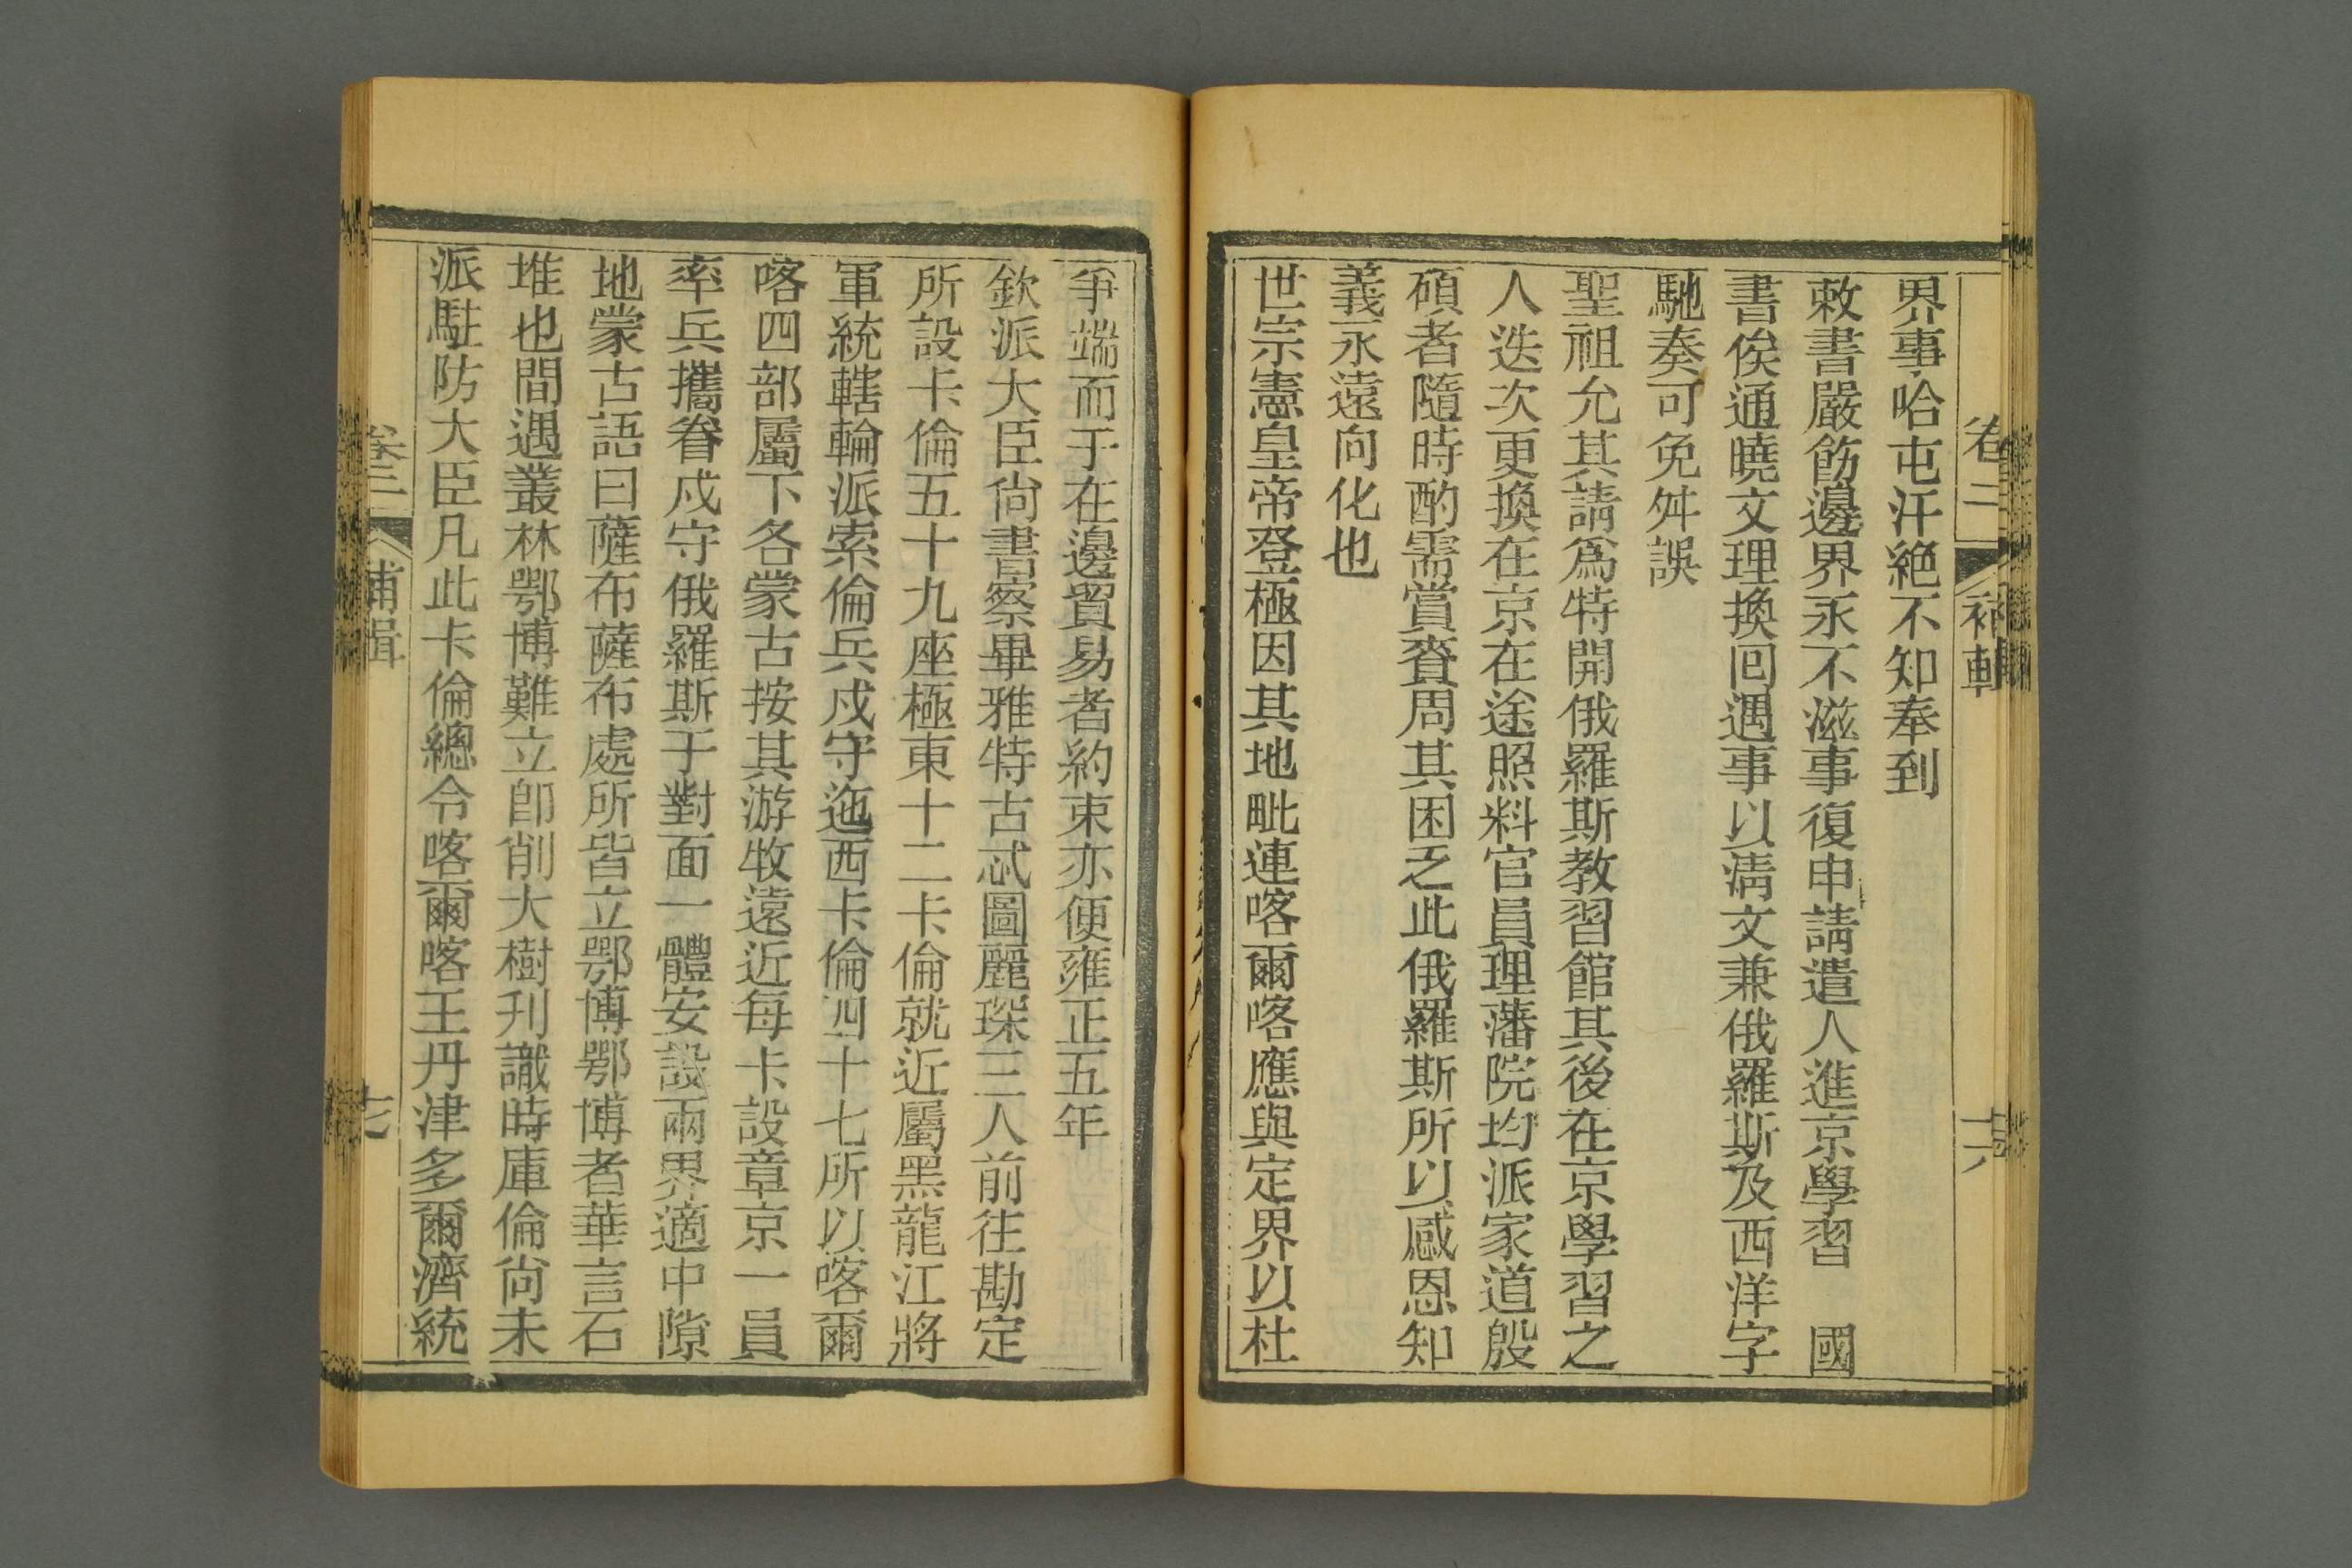 卷二 補輯 十六
界事哈屯汗絶不知奉到
敕書嚴飭邊界永不滋事復申請遣人進京學習 國
書俟通曉文理換回遇事以清文兼俄羅斯及西洋字
馳奏可免舛誤
聖祖允其請爲特開俄羅斯教習館其後在京學習之
人迭次更換在京在途照料官員理藩院均派家道殷
碩者隨時酌需賞賚周其困乏此俄羅斯所以感恩知
義永遠向化也
世宗憲皇帝登極因其地毗連喀爾喀應與定界以杜
爭端而于在邊貿易者約束亦便雍正五年
欽派大臣尙書察畢雅特古忒圖麗琛三人前往勘定
所設卡倫五十九座極東十二卡倫就近屬黑龍江將
軍統轄輪派索倫兵戍守迤西卡倫四十七所以喀爾
喀四部屬下各蒙古按其游牧遠近每卡設章京一員
率兵攜眷戍守俄羅斯于對面一體安設兩界適中隙
地蒙古語曰薩布薩布處所皆立鄂博鄂博者華言石
堆也間遇叢林鄂博難立卽削大樹刋識時庫倫尙未
派駐防大臣凡此卡倫總令喀爾喀王丹津多爾濟統
卷二 補輯 十七